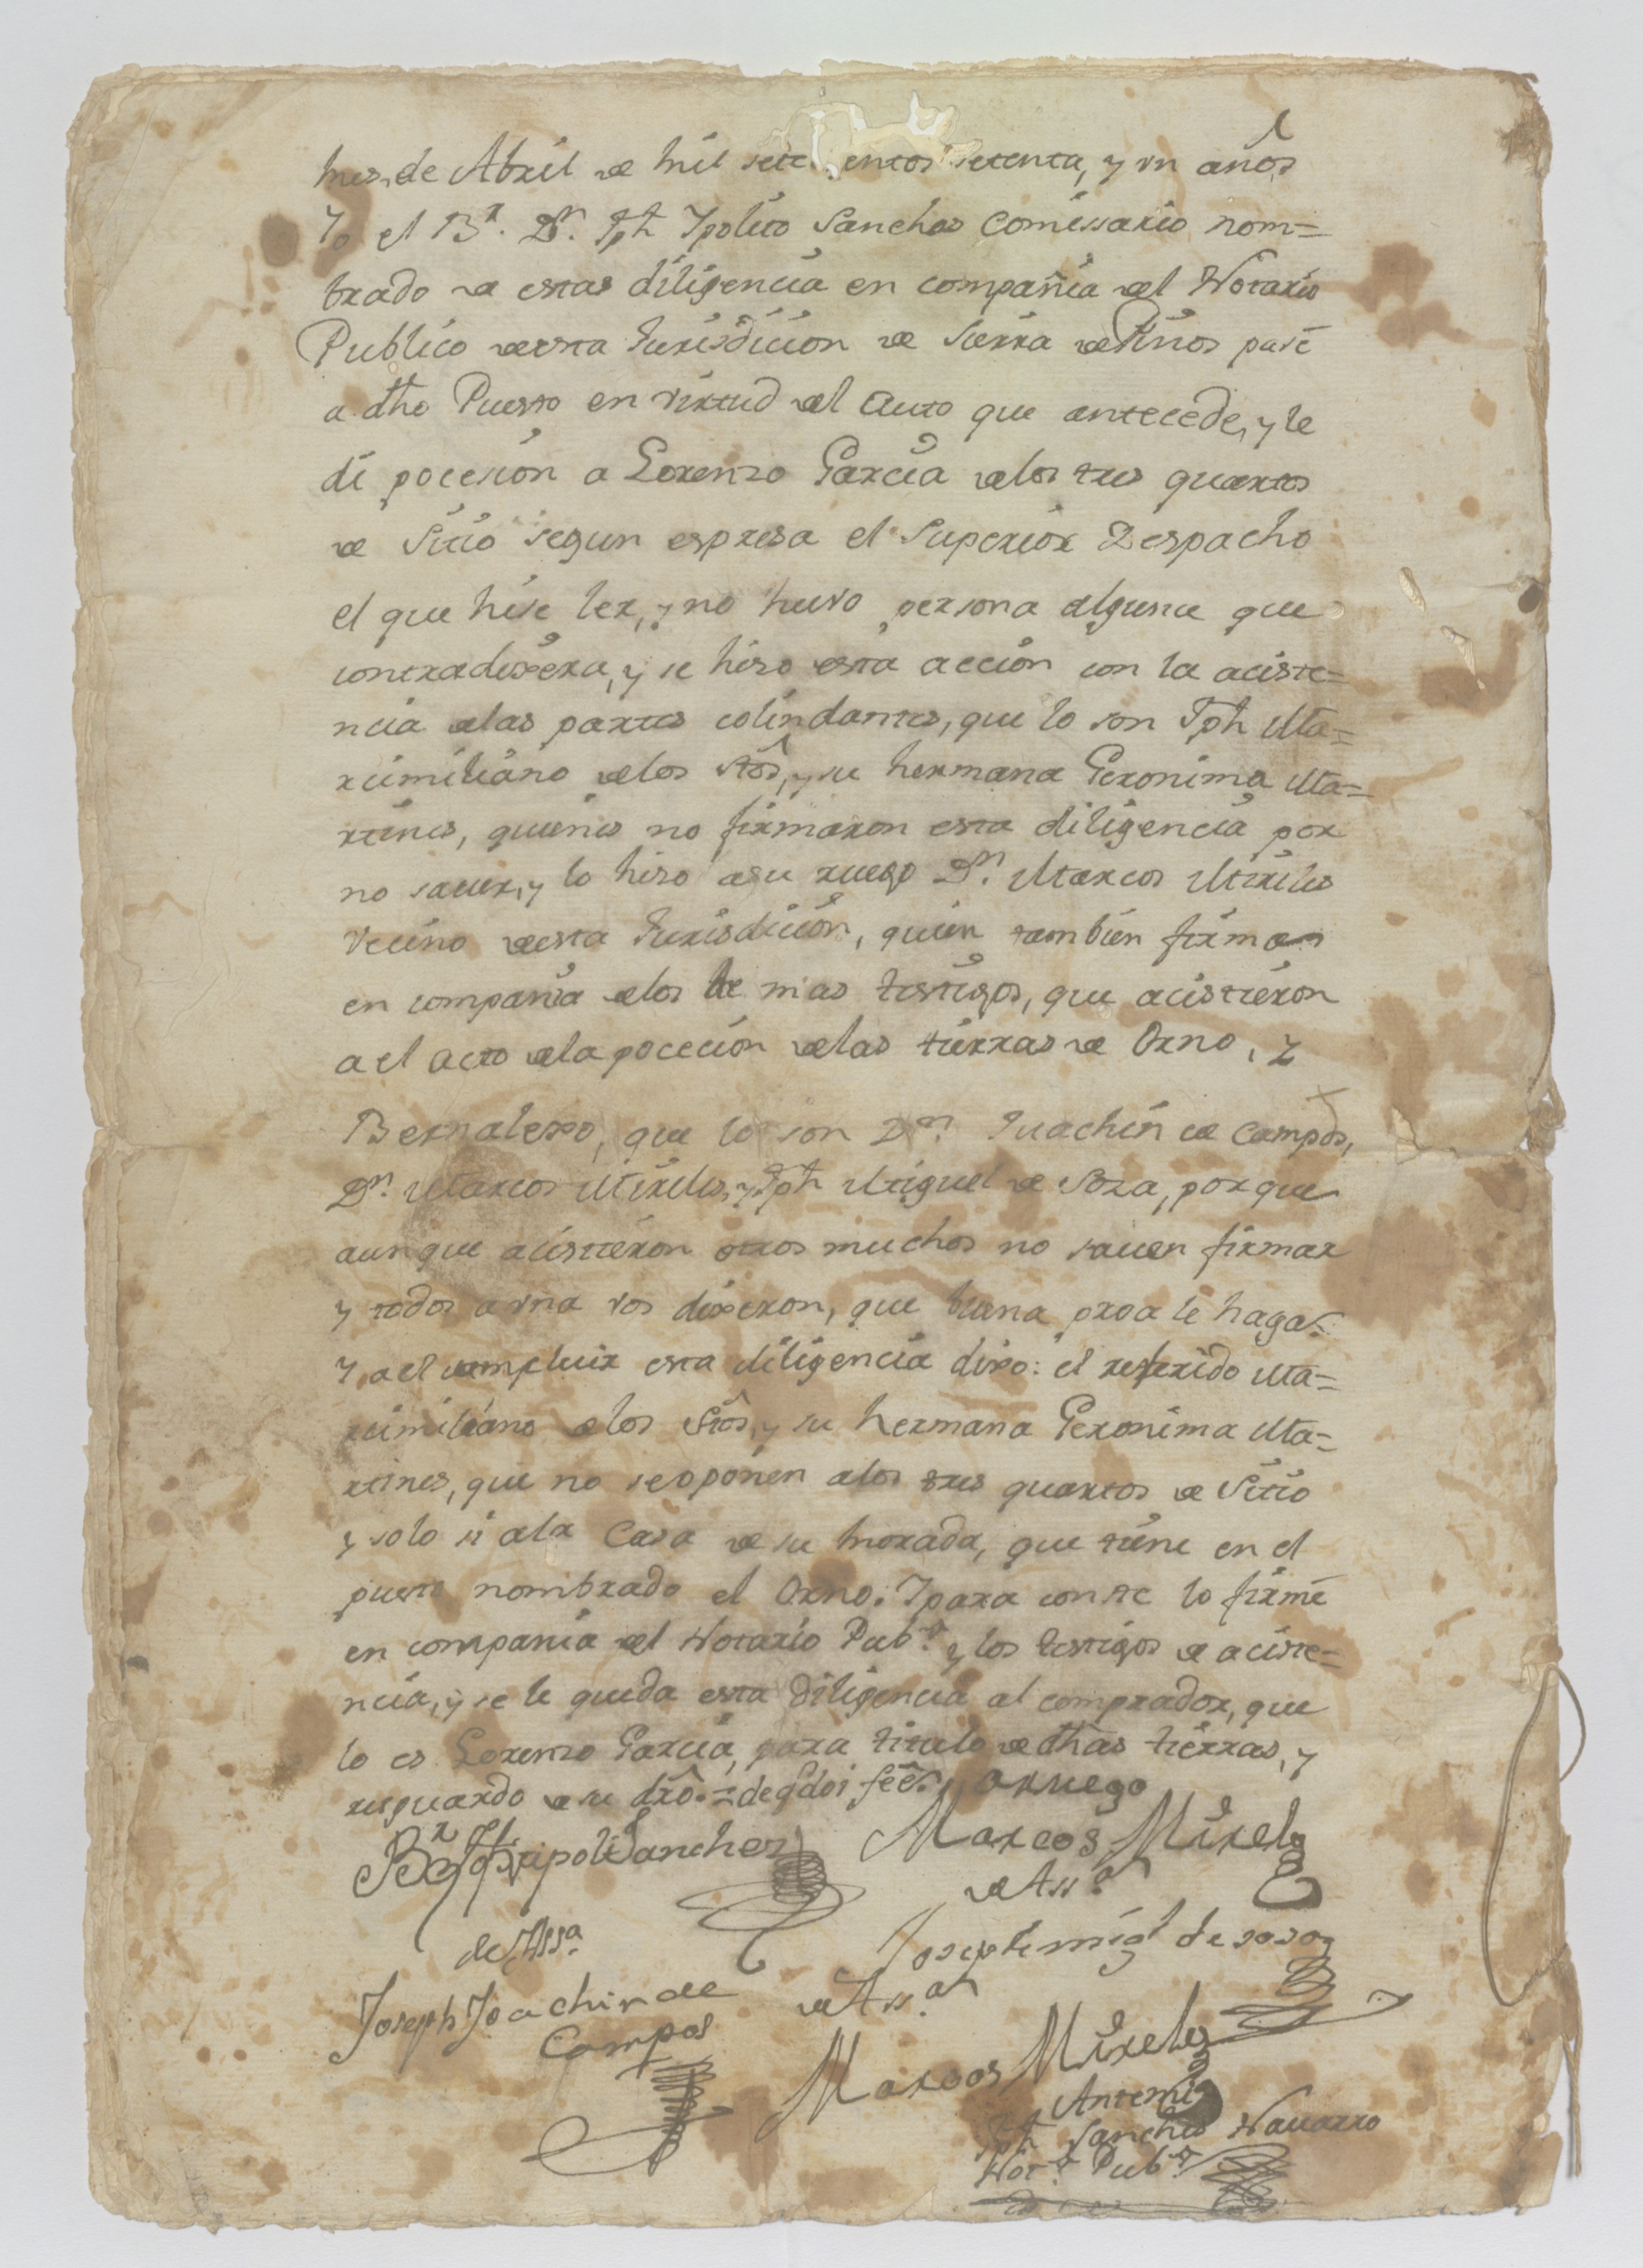 mes, de Abril de mil setecientos setenta, y un años
Yo el Br. Dn. Jph Ypolito Sanches Comissario nom=
brado de estas diligencia en compañia del Notario
Publico de esta Jurisdicion de Sierra de Pinos pasé
a dho Puesto en virtud del Auto que antecede, y le
di pocesion a Lorenzo Garcia de los tres quartos
de Sitio segun espresa el Superior Despacho
el que hise ler, y no huvo persona alguna que
contradixera, y se hizo esta accion con la aciste=
ncia de las partes colindantes, que lo son Jph Ma=
ximiliano de los Stôs, y su hermana Geronima Ma=
rtines, quienes no firmaron esta diligencia por
no saver, y lo hizo a su ruego Dn. Marcos Mireles
vecino de esta Jurisdicion, quien tambien firma
en compania de los de mas testigos, que acistieron
a el acto de la pocecion de las tierras de Orno, y
Bernalexo, que lo son Dn. Juachin de Campos,
Dn. Marcos Mireles, y Jph Miguel de Soza, porque
aunque acistieron otros muchos no saven firmar
y todos a vna vos dixeron, que buena proa le haga.
Y a el compluir esta diligencia dixo: el referido Ma=
ximiliano de los Stôs, y su hermana Geronima Ma=
rtines, que no se oponen a los tres quartos de Sitio
y solo si a la Casa de su morada, que tiene en el
puesto nombrado el Orno. Y para conste lo firmé
en compania del Notario Pubº. y los testigos de aciste=
ncia, y se le queda esta Diligencia al comprador, que
lo es Lorenzo Garcia, para titulo de dhas tierras, y
resguardo de su dro. = de q doi feê. Aruego
Br Jph Ypolito Sanchez Marcos Mireles
de Assa. de Assa.
Joseph migl de sosa
Joseph Joachin de de Assa.
Campos Marcos Mireles
Antemi
Jph Sanches Navarro
Noto. Pubco